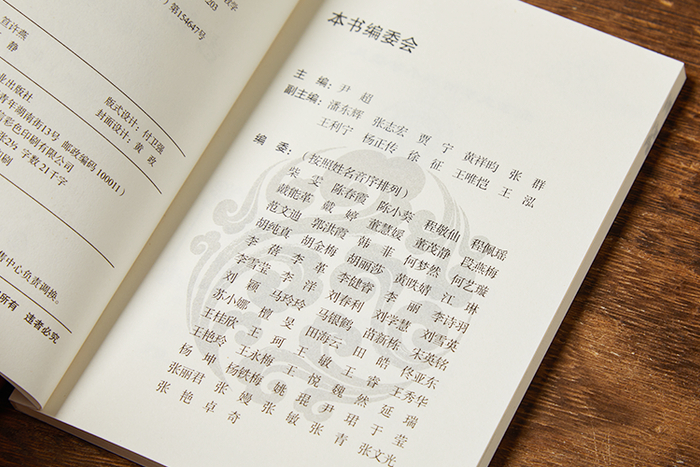 教学
203
）第154647号
笪许燕
静
业出版社
青年湖南街13号 邮政编码 100011）
版式设计：付卫强
封面设计：黄 政
信彩色印刷有限公司
字数 21千字
印刷
售中心负责调换。
所有 违者必究
本书编委会
主 编：尹 超
副主编：潘东辉 张志宏 贾 宁 黄祥昀 张 群
王利宁 杨正传 徐 征 王唯恺 王 泓
编 委：（按照姓名音序排列）
柴 雯 陈春霞 陈小葵 程敏仙 程佩瑶
戴能革 戴 婷 董慧媛 董茂静 段燕梅
范文迪 郭洪霞 韩 菲 何梦然 何艺璇
胡纯直 胡金梅 胡丽莎 黄昳婧 江 琳
李 蓓 李 革 李健睿 李 丽 李诗羽
李雪莹 李 洋 刘春利 刘学慧 刘雪英
刘 丽 马玲玲 马银鹤 苗新栋 宋英铭
苏小娜 檀 旻 田海云 田 皓 佟亚东
王桂欣 王 珂 王 敏 王 睿 王秀华
王艳玲 王永梅 王 悦 魏 然 延 瑞
杨 坤 杨轶梅 姚 琨 尹 珺 于 莹
张丽君 张 嫚 张 敏 张 青 张文光
张 艳 卓 奇